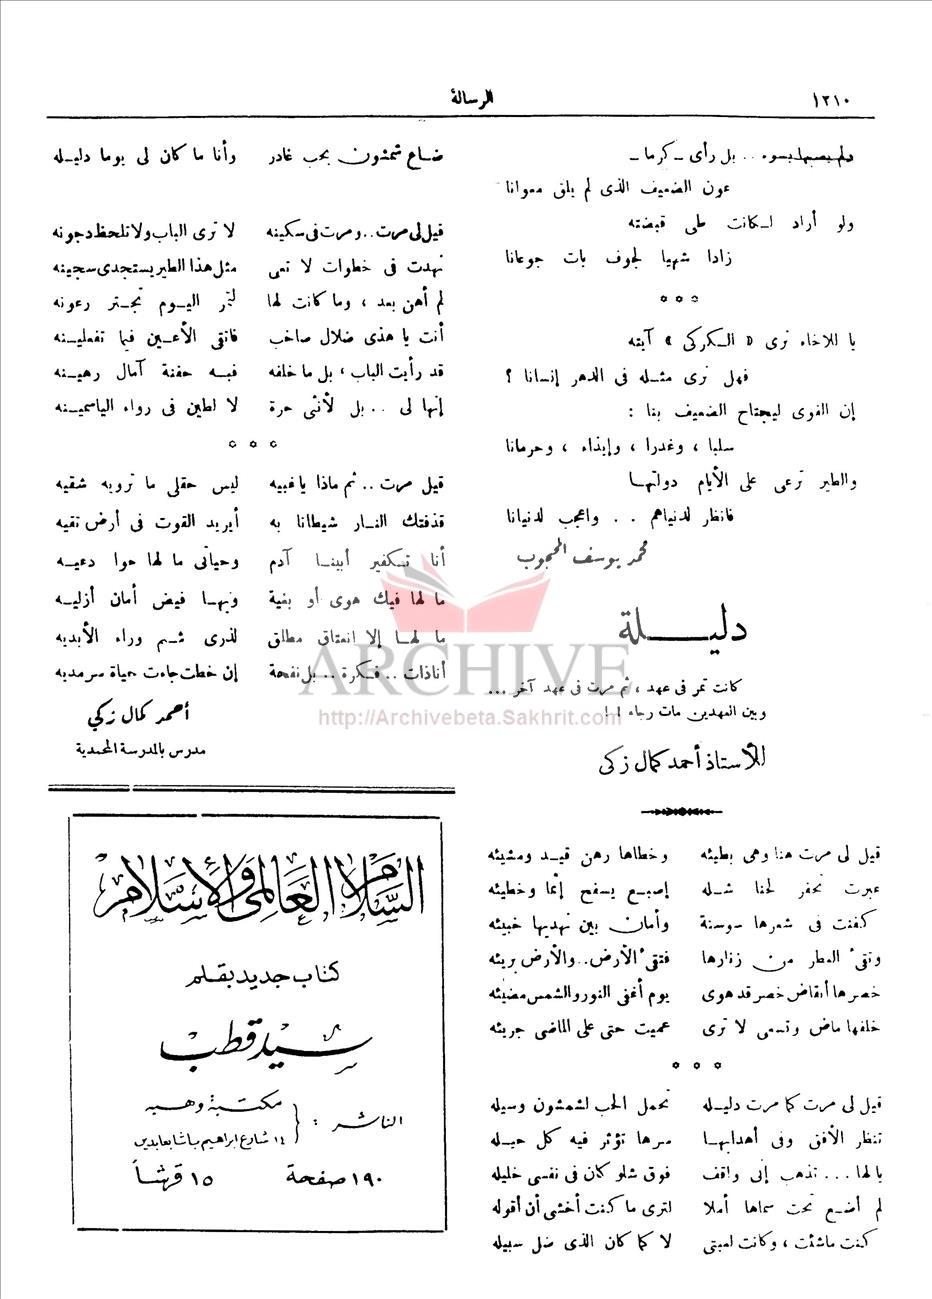 ١٢١٠
الرسالة
ولم يصبها بسوء... بل رأى - كرما -
عون الضعيف الذى لم يلق معوانا
ولو أراد لكانت طى قبضته
زادا شهيا لجوف بات جوعانا
* * *
يا للاخاء نرى « الكركى » آيته
فهل نرى مثله فى الدهر إنسانا ؟
إن القوى ليجتاح الضعيف بنا :
سلبا ، وغدرا ، وإيذاء ، وحرمانا
والطير ترعى على الأيام دولتها
فانظر لدنياهم . . واعجب لدنيانا
محمد يوسف المحجوب
دليلة
كانت تمر فى عهد ، ثم مرت فى عهد آخر ...
وبين العهدين مات رجاء لها
للأستاذ أحمد كمال زكى
قيل لى مرت هنا وهى بطيئه وخطاها رهن قيد ومشيئه
عبرت تحفر لحنا شله إصبع يسفح إثما وخطيئه
كفنت فى شعرها سوسنة وأمان بين نهديها خبيئه
ونقىء العطر من زنارها فتقىء الأرض.. والأرض بريئه
خصرها أنقاض خصر قد هوى يوم أغفى النور والشمس مضيئه
خلفها ماض وتسعى لا ترى عميت حتى على الماضى جريئه
* * *
قيل لى مرت كما مرت دليله تحمل الحب لشمشون وسيله
تنظر الأفق وفى أهدابها سرها تؤثر فيه كل حيله
يالها... تذهب إلى واقف فوق شلو كان فى نفسى خليله
لم أضع تحت سماها أملا لترى ما كنت أخشى أن أقوله
كنت ماشئت ، وكانت لعبتى لا كما كان الذى ضل سبيله
ضاع شمشون بحب غادر وأنا ما كان لى يوما دليله
قيل لى مرت.. ومرت فى سكينه لا ترى الباب ولا تلحظ دجونه
نهدت فى خطوات لا تعى مثل هذا الطير يستجدى سجينه
لم أهن بعد ، وما كانت لها لتمر اليوم تجتر رعونه
أنت يا هذى ضلال صاخب فاتقى الأعين فيما تفعلينه
قد رأيت الباب ، بل ما خلفه فبه حفنة آمال رهينه
إنها لى . . . بل لأنثى حرة لا لطين فى رواء الياسمينه
* * *
قيل مرت . . ثم ماذا يا غبيه ليس حقلى ما تروبه شقيه
قذفتك النار شيطانا به أيريد القوت فى أرض نقيه
أنا تكفير أبينا آدم وحياتى ما لها حوا دعيه
ما لها فيك هوى أو بغية وبها فيض أمان أزليه
ما لها إلا انعتاق مطلق لذرى شم وراء الأبديه
أنا ذات . . فكرة . . بل نفحة إن خطت جاءت حياة سرمديه
أحمد كمال زكي
مدرس بالمدرسة المحمدية
السلام العالمى والإسلام
كتاب جديد بقلم
سيد قطب
الناشر : مكتبة وهبه
١٤ شارع ابراهيم باشا بعابدين
١٩٠ صفحة ١٥ قرشاً
ARCHIVE
http://Archivebeta.Sakhrit.com